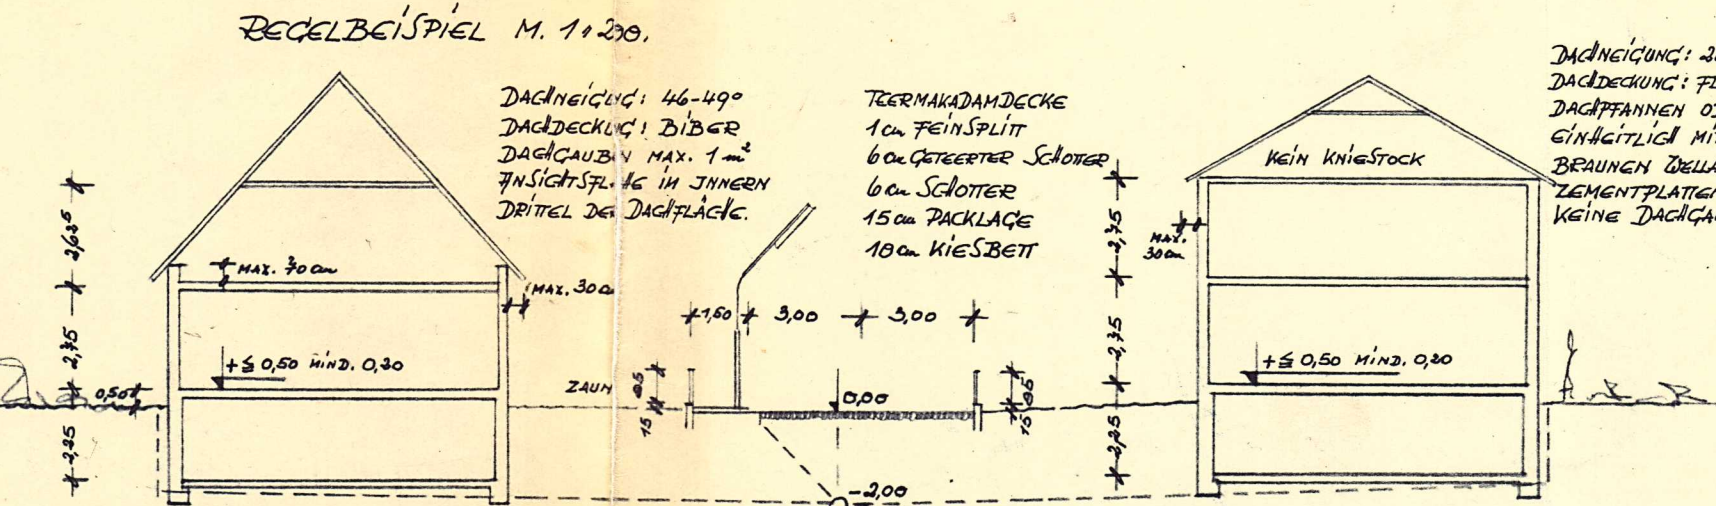 REGELBEISPIEL M. 1:200.
DACHNEIGUNG: 46-49°
DACHDECKUNG: BIBER
DACHGAUBEN MAX. 1 m²
ANSICHTSFLÄCHE IM INNERN
DRITTEL DER DACHFLÄCHE.
TEERMAKADAMDECKE
1 cm FEINSPLITT
6 cm GETEERTER SCHOTTER
6 cm SCHOTTER
15 cm PACKLAGE
18 cm KIESBETT
DACHNEIGUNG: 2
DACHDECKUNG: FL
DACHPFANNEN
EINHEITLICH MI
BRAUNEN WELLA
ZEMENTPLATTEN
KEINE DACHGA
KEIN KNIESTOCK
MAX. 70 cm
MAX. 30 c
MAX.
30 cm
2,75
2,75
2,25
2,75
2,25
0,50
+≦ 0,50 MIND. 0,20
+≦ 0,50 MIND. 0,20
1,50 3,00 3,00
ZAUN
85
15
85
15
0,00
-2,00